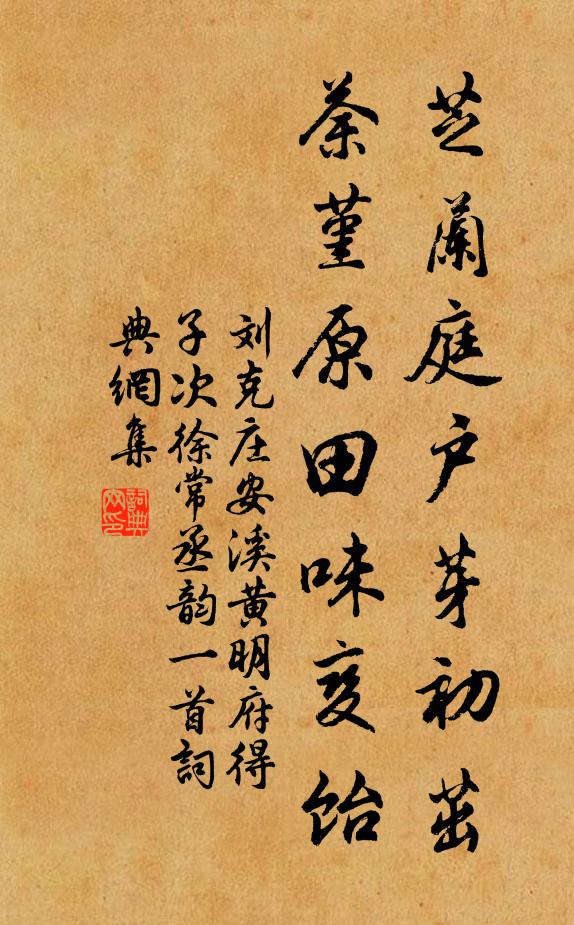 芝蘭庭户芽初茁
荼堇原田味变饴
刘克庄安溪黄明府得
子次徐常丞韵一首詞
典網集
詞典网印